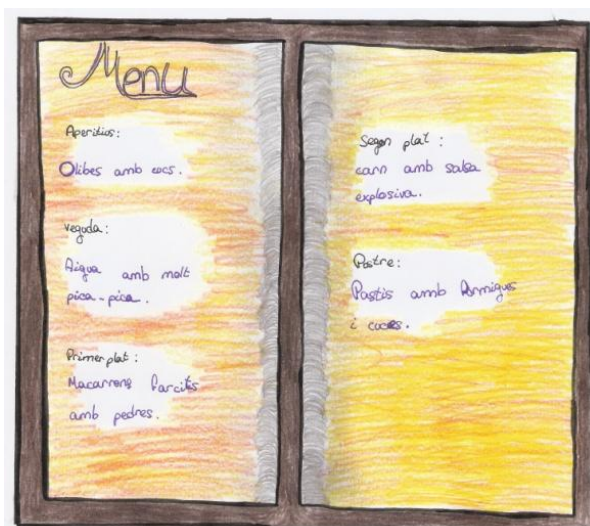 Menu
Aperitius:
Olibes amb cocs.
veguda:
Aigua amb molt
pica-pica.
Primer plat:
Macarrons farcits
amb pedres.
Segon plat:
carn amb salsa
explosiva.
Postre:
Pastis amb formigues
i cuces.